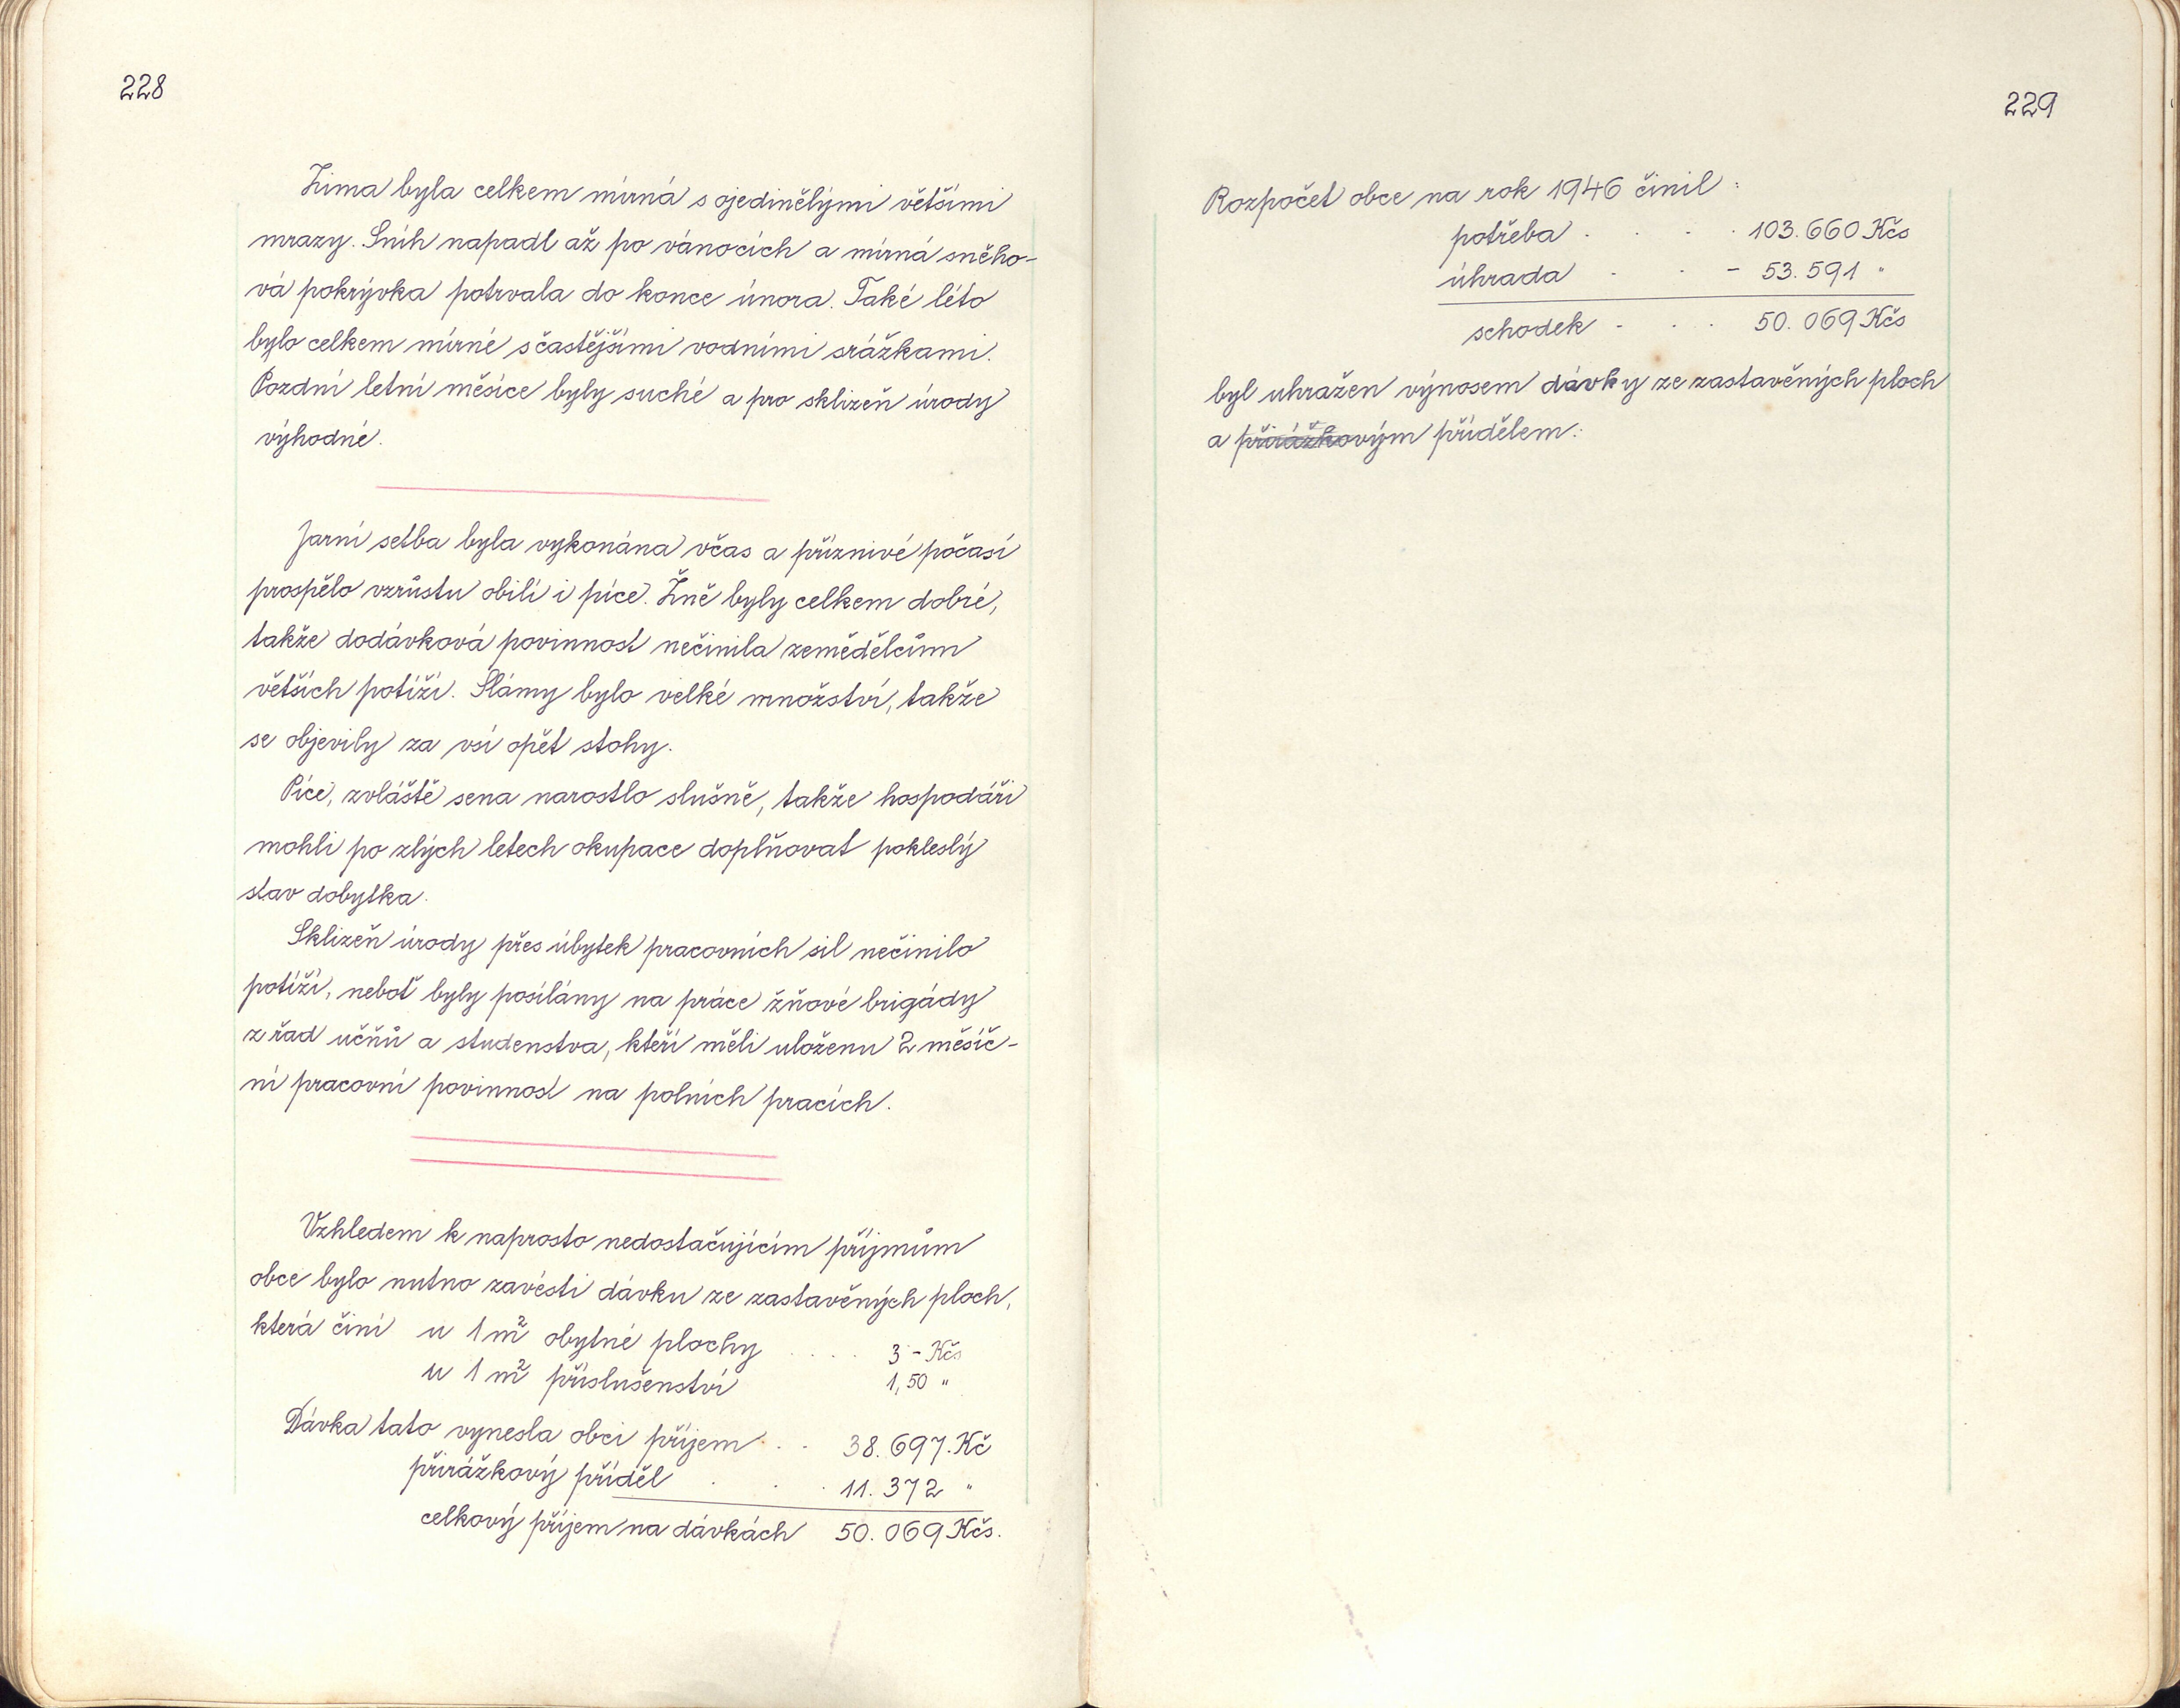 228
Zima byla celkem mírná s ojedinělými většími
mrazy. Sníh napadl až po vánocích a mírná sněho-
vá pokrývka potrvala do konce února. Také léto
bylo celkem mírné s častějšími vodními srážkami.
Pozdní letní měsíce byly suché a pro sklizeň úrody
výhodné.
Jarní setba byla vykonána včas a příznivé počasí
prospělo vzrůstu obilí i píce. Žně byly celkem dobré,
takže dodávková povinnost nečinila zemědělcům
větších potíží. Slámy bylo velké množství, takže
se objevily za vsí opět stohy.
Píce, zvláště sena narostlo slušně, takže hospodáři
mohli po zlých letech okupace doplňovat pokleslý
stav dobytka.
Sklizeň úrody přes úbytek pracovních sil nečinilo
potíží, neboť byly posílány na práce žňové brigády
z řad učňů a studenstva, kteří měli uloženu 2 měsíč-
ní pracovní povinnost na polních pracích.
Vzhledem k naprosto nedostačujícím příjmům
obce bylo nutno zavésti dávku ze zastavěných ploch,
která činí u 1 m² obytné plochy . . . . 3 - Kčs
u 1 m² příslušenství 1,50 "
Dávka tato vynesla obci příjem . . 38.697. Kč
přirážkový příděl . . . 11.372 "
celkový příjem na dávkách 50.069 Kčs.
229
Rozpočet obce na rok 1946 činil:
potřeba . . . . 103.660 Kčs
úhrada . . - 53.591 "
schodek . . . 50.069 Kčs
byl uhražen výnosem dávky ze zastavěných ploch
a přirážkovým přídělem: